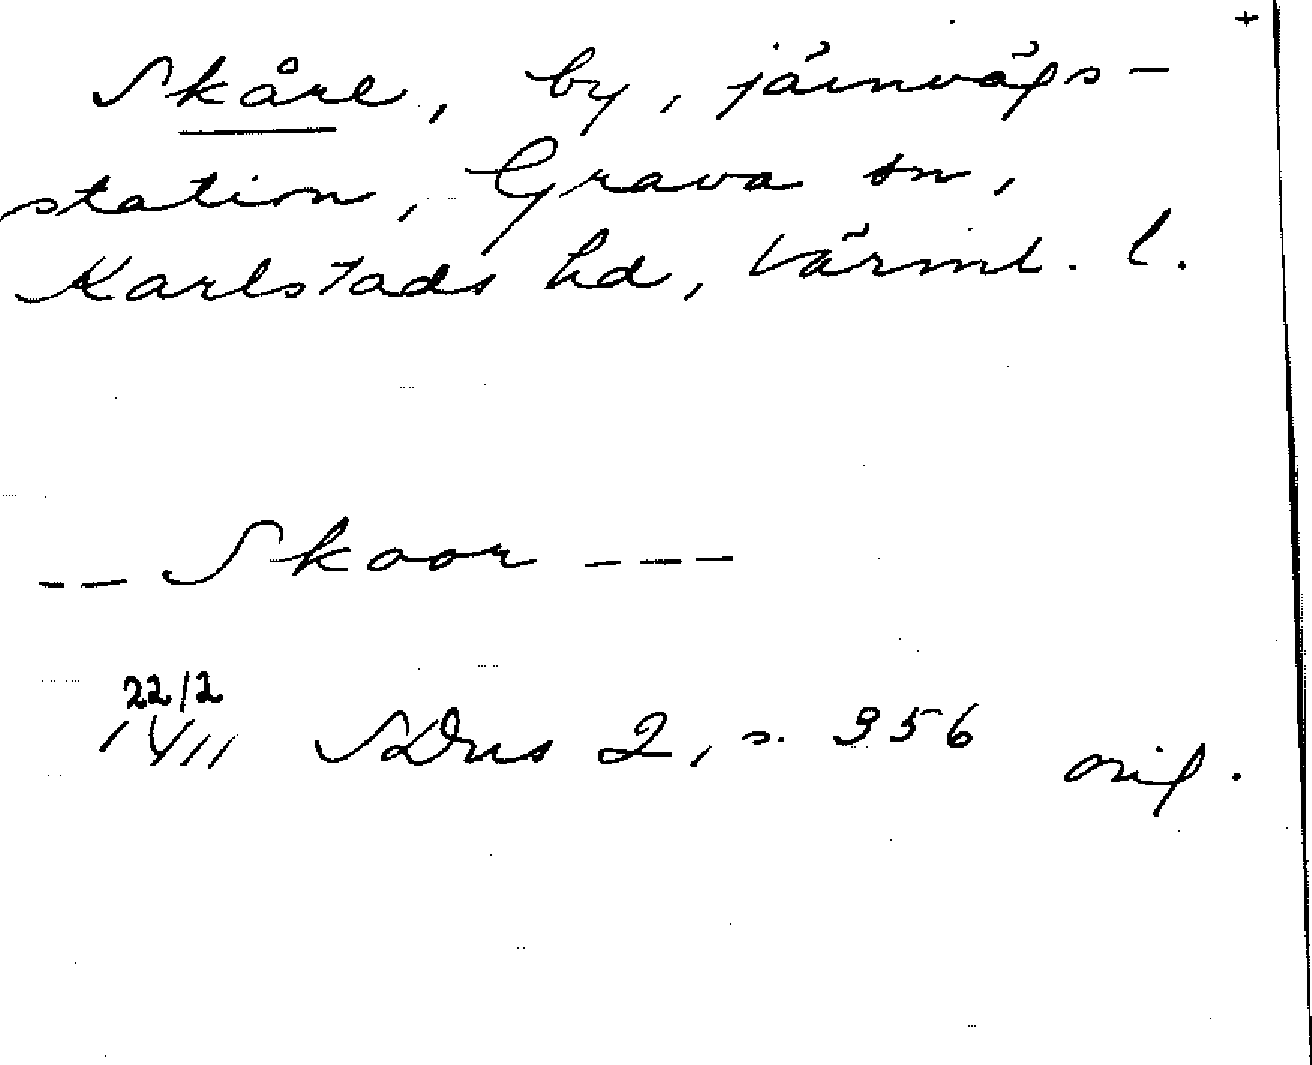 +
Skåre, by, järnvägs-
station, Grava sn,
Karlstads hd, Värml. l.
-- Skoor ---
22/2
1411 SDns 2, s. 356
orig.